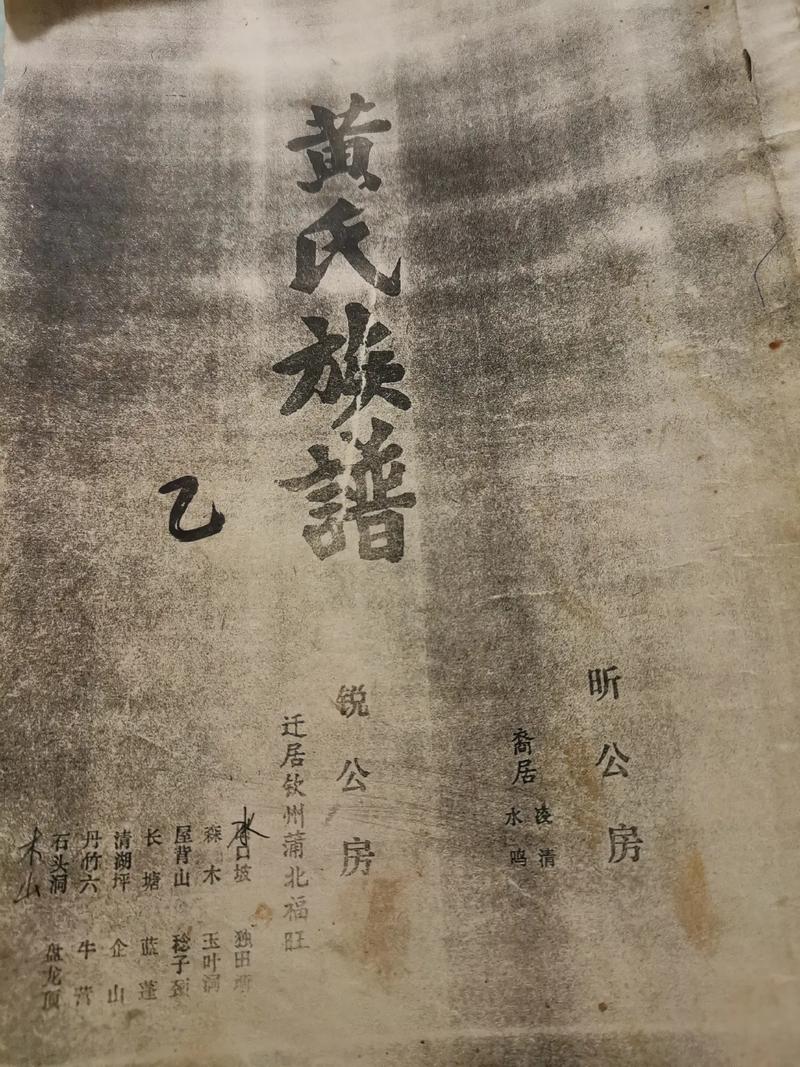 黄氏族譜
乙
昕公房
裔居
凌清
水鸣
锐公房
迁居钦州蒲北福旺
水
口坡 独田
森木 玉叶洞
屋背山 稔子颈
长塘 蓝蓬
清湖坪 企山
丹竹六 牛营
石头洞 盘龙顶
木山